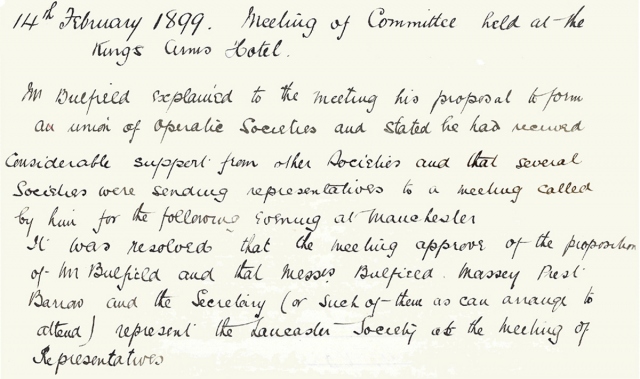 14th February 1899. Meeting of Committee held at the
Kings Arms Hotel.
Mr Bulfield explained to the meeting his proposal to form
an union of Operatic Societies and stated he had received
Considerable support from other Societies and that several
Societies were sending representatives to a meeting called
by him for the following Evening at Manchester
It was resolved that the meeting approve of the proposition
of Mr Bulfield and that Messrs Bulfield. Massey Prest
Barrow and the Secretary (or such of them as can arrange to
attend) represent the Lancaster Society at the meeting of
Representatives